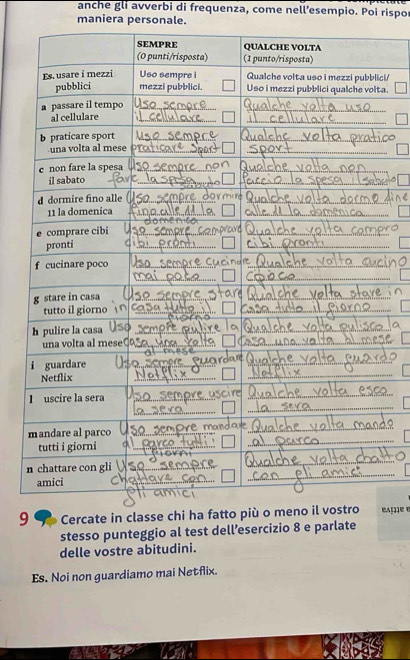 anche gli avverbi di frequenza, come nell'esempio. Poi rispo
maniera personale.
SEMPRE
(0 punti/risposta)
QUALCHE VOLTA
(1 punto/risposta)
Es. usare i mezzi
pubblici
Uso sempre i
mezzi pubblici.
Qualche volta uso i mezzi pubblici/
Uso i mezzi pubblici qualche volta.
a passare il tempo
al cellulare
Uso sempre
il cellulare
Qualche volta uso
il cellulare
b praticare sport
una volta al mese
uso sempre
praticare sport
Qualche volta pratico
sport
c non fare la spesa
il sabato
Uso sempre non
fare la spesa
sabato
Qualche volta non
faccio la spesa il sabato
d dormire fino alle
11 la domenica
Uso sempre dormire
fino alle 11 la
domenica
Qualche volta dormo fine
alle 11 la domenica
e comprare cibi
pronti
Uso sempre comprare
cibi pronti
Qualche volta compro
cibi pronti
f cucinare poco
Uso sempre cucinare
mai poco
Qualche volta cucino
poco
g stare in casa
tutto il giorno
Uso sempre stare
in casa tutto il
giorno
Qualche volta stare in
casa tutto il giorno
h pulire la casa
una volta al mese
Uso sempre pulire la
casa una volta
al mese
Qualche volta pulisco la
casa una volta al mese
i guardare
Netflix
Uso sempre guardare
Netflix
Qualche volta guardo
Netflix
l uscire la sera
Uso sempre uscire
la sera
Qualche volta esco
la sera
m andare al parco
tutti i giorni
Uso sempre mandare
al parco tutti i
giorni
Qualche volta mando
al parco
n chattare con gli
amici
Uso sempre
chattare con
gli amici
Qualche volta chatto
con gli amici
9 Cercate in classe chi ha fatto più o meno il vostro
stesso punteggio al test dell'esercizio 8 e parlate
delle vostre abitudini.
Es. Noi non guardiamo mai Netflix.